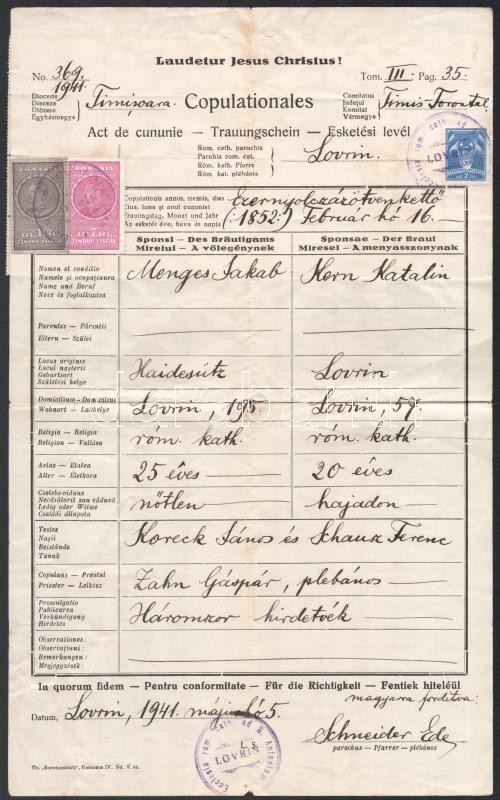 Laudetur Jesus Christus!
No. 369. 1941.
Tom. III. Pag. 35.
Diocesis
Dieceza
Diözese
Egyházmegye
Timișoara.
Copulationales
Comitatus
Județul
Komitat
Vármegye
Timis-Torontal
Act de cununie — Trauungschein — Esketési levél
Rom. cath. parochia
Parohia rom. cat.
Röm. kath. Pfarre
Róm. kat. plébánia
Lovrin.
Copulationis annus, mensis, dies
Ziua, luna și anul cununiei
Trauungstag, Monat und Jahr
Az esketés éve, hava és napja
Ezernyolczázötvenkettő
(:1852:) Február hó 16.
ROMANIA
TIMBRU FISCAL
ROMANIA
TIMBRU FISCAL
Sponsi — Des Bräutigams
Mirelui — A völegénynek
Sponsae — Der Braut
Miresei — A menyasszonynak
Nomen et conditio
Numele și ocupațiunea
Name und Beruf
Neve és foglalkozása
Menges Jakab
Kern Katalin
Parentes — Părinții
Eltern — Szülei
Locus originis
Locul nașterii
Geburtsort
Születési helye
Haidesütz
Lovrin
Domicilium — Domiciliul
Wohnort — Lakhelye
Lovrin, 195.
Lovrin, 59.
Religio — Religia
Religion — Vallása
róm. kath.
róm. kath.
Aetas — Etatea
Alter — Életkora
25 éves
20 éves
Coelebs-viduus
Necăsătorit sau văduvă
Ledig oder Witwe
Családi állapota
nőtlen
hajadon
Testes
Nașii
Beistände
Tanuk
Koreck János és Schauz Ferenc
Copulans — Preotul
Priester — Lelkész
Zahn Gáspár, plébános
Promulgatio
Publicarea
Verkündigung
Hirdetés
Háromszor hirdetvék
Observationes:
Observațiuni:
Bemerkungen:
Megjegyzések:
In quorum fidem — Pentru conformitate — Für die Richtigkeit — Fentiek hiteléül
magyarra fordítva:
Datum, Lovrin, 1941. május hó 5.
L. S.
LOVRIN
Ecclesia rom. cath. ad S. Antonium
Schneider Ede
parochus — Pfarrer — plébános
Tip. „Sonntagsblatt", Timisoara IV. No. 6. sz.